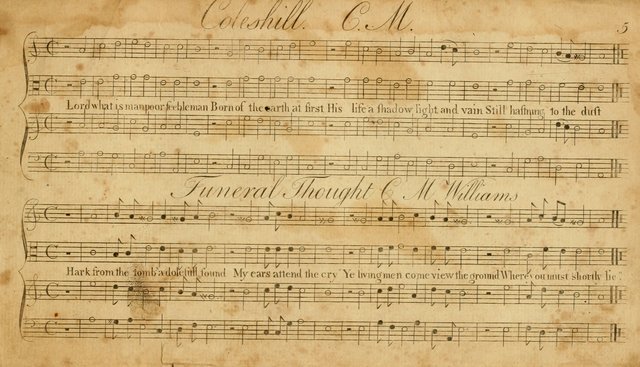 Coleshill. C.M. 5
Lord what is man poor feeble man Born of the earth at first His life a shadow light and vain Still hast'ning to the dust
Funeral Thought C M Williams
Hark from the tomb a doleful sound My ears attend the cry Ye living men come view the ground Where you must shortly lie